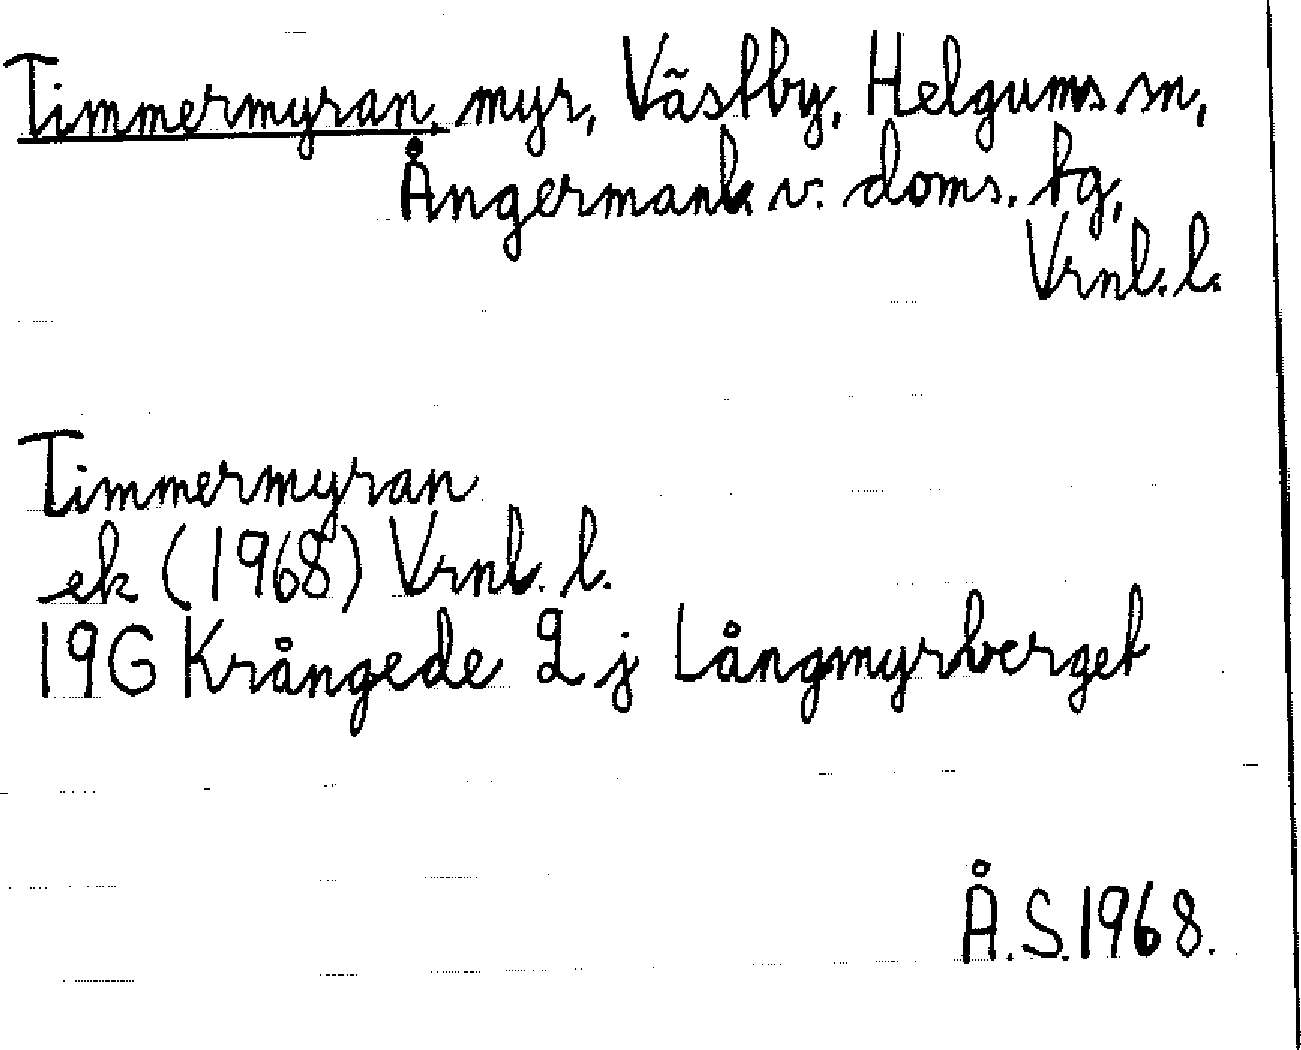 Timmermyran, myr, Västby, Helgums sn,
Ångermanl. v. doms. tg,
Vrnl. l.
Timmermyran
ek (1968) Vrnl. l.
19G Krångede 2 j Långmyrberget
Å.S.1968.